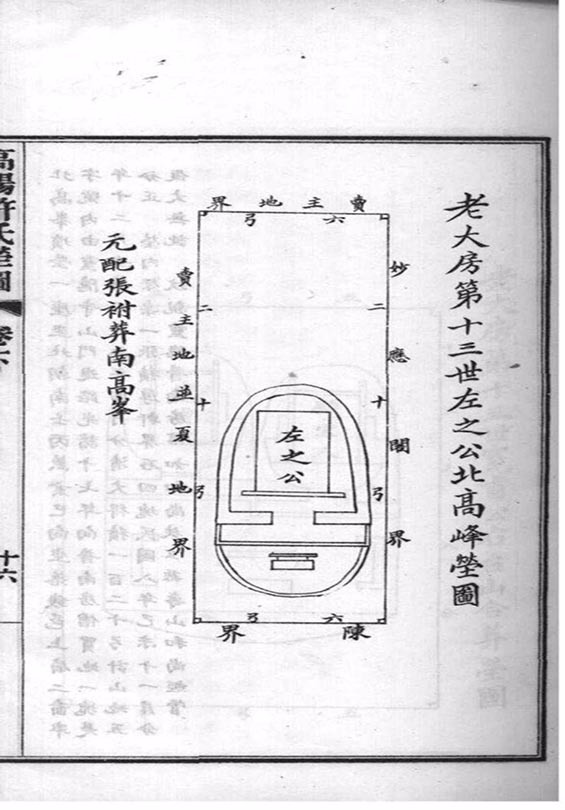 老大房第十三世左之公北高峰塋圖
賣主地界
六弓
妙應閣界
二十弓
左之公
二十弓
賣主地並夏地界
六弓
陳界
元配張祔葬南高峯
高陽許氏塋圖
卷六
十六